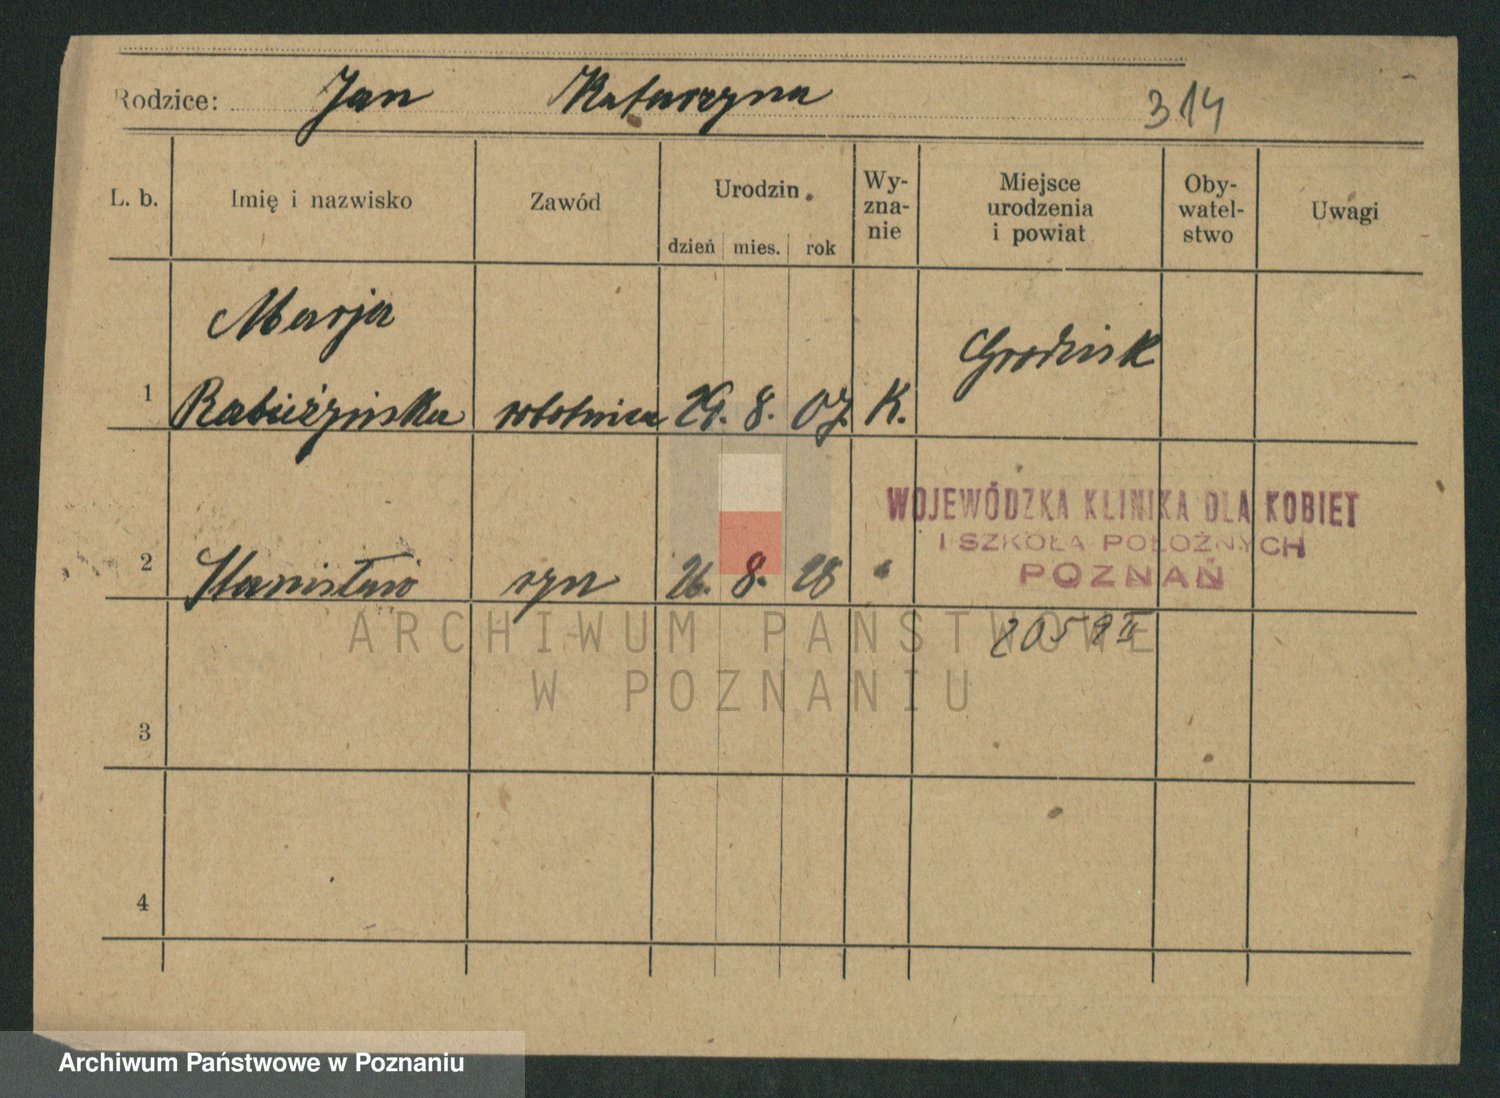 Rodzice: Jan Katarzyna 314
L. b. Imię i nazwisko Zawód Urodzin Wy-zna-nie Miejsce urodzenia i powiat Oby-watel-stwo Uwagi
dzień mies. rok
Marja Grodzisk
1 robotnica 8. 07. K.
WOJEWÓDZKA KLINIKA DLA KOBIET
I SZKOŁA POŁOŻNYCH
POZNAŃ
2 Stanisław syn 26. 8. 28 "
2059 II
ARCHIWUM PAŃSTWOWE
W POZNANIU
3
4
Archiwum Państwowe w Poznaniu